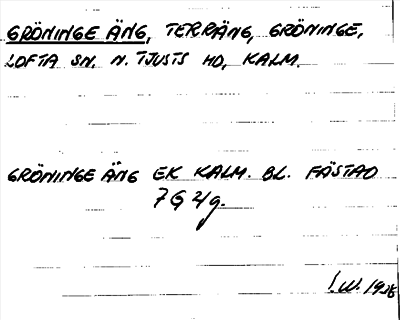 GRÖNINGE ÄNG, TERRÄNG, GRÖNINGE,
LOFTA SN, N. TJUSTS HD, KALM.
GRÖNINGE ÄNG EK KALM. BL. FÅSTAD
7G 4g.
I.W.